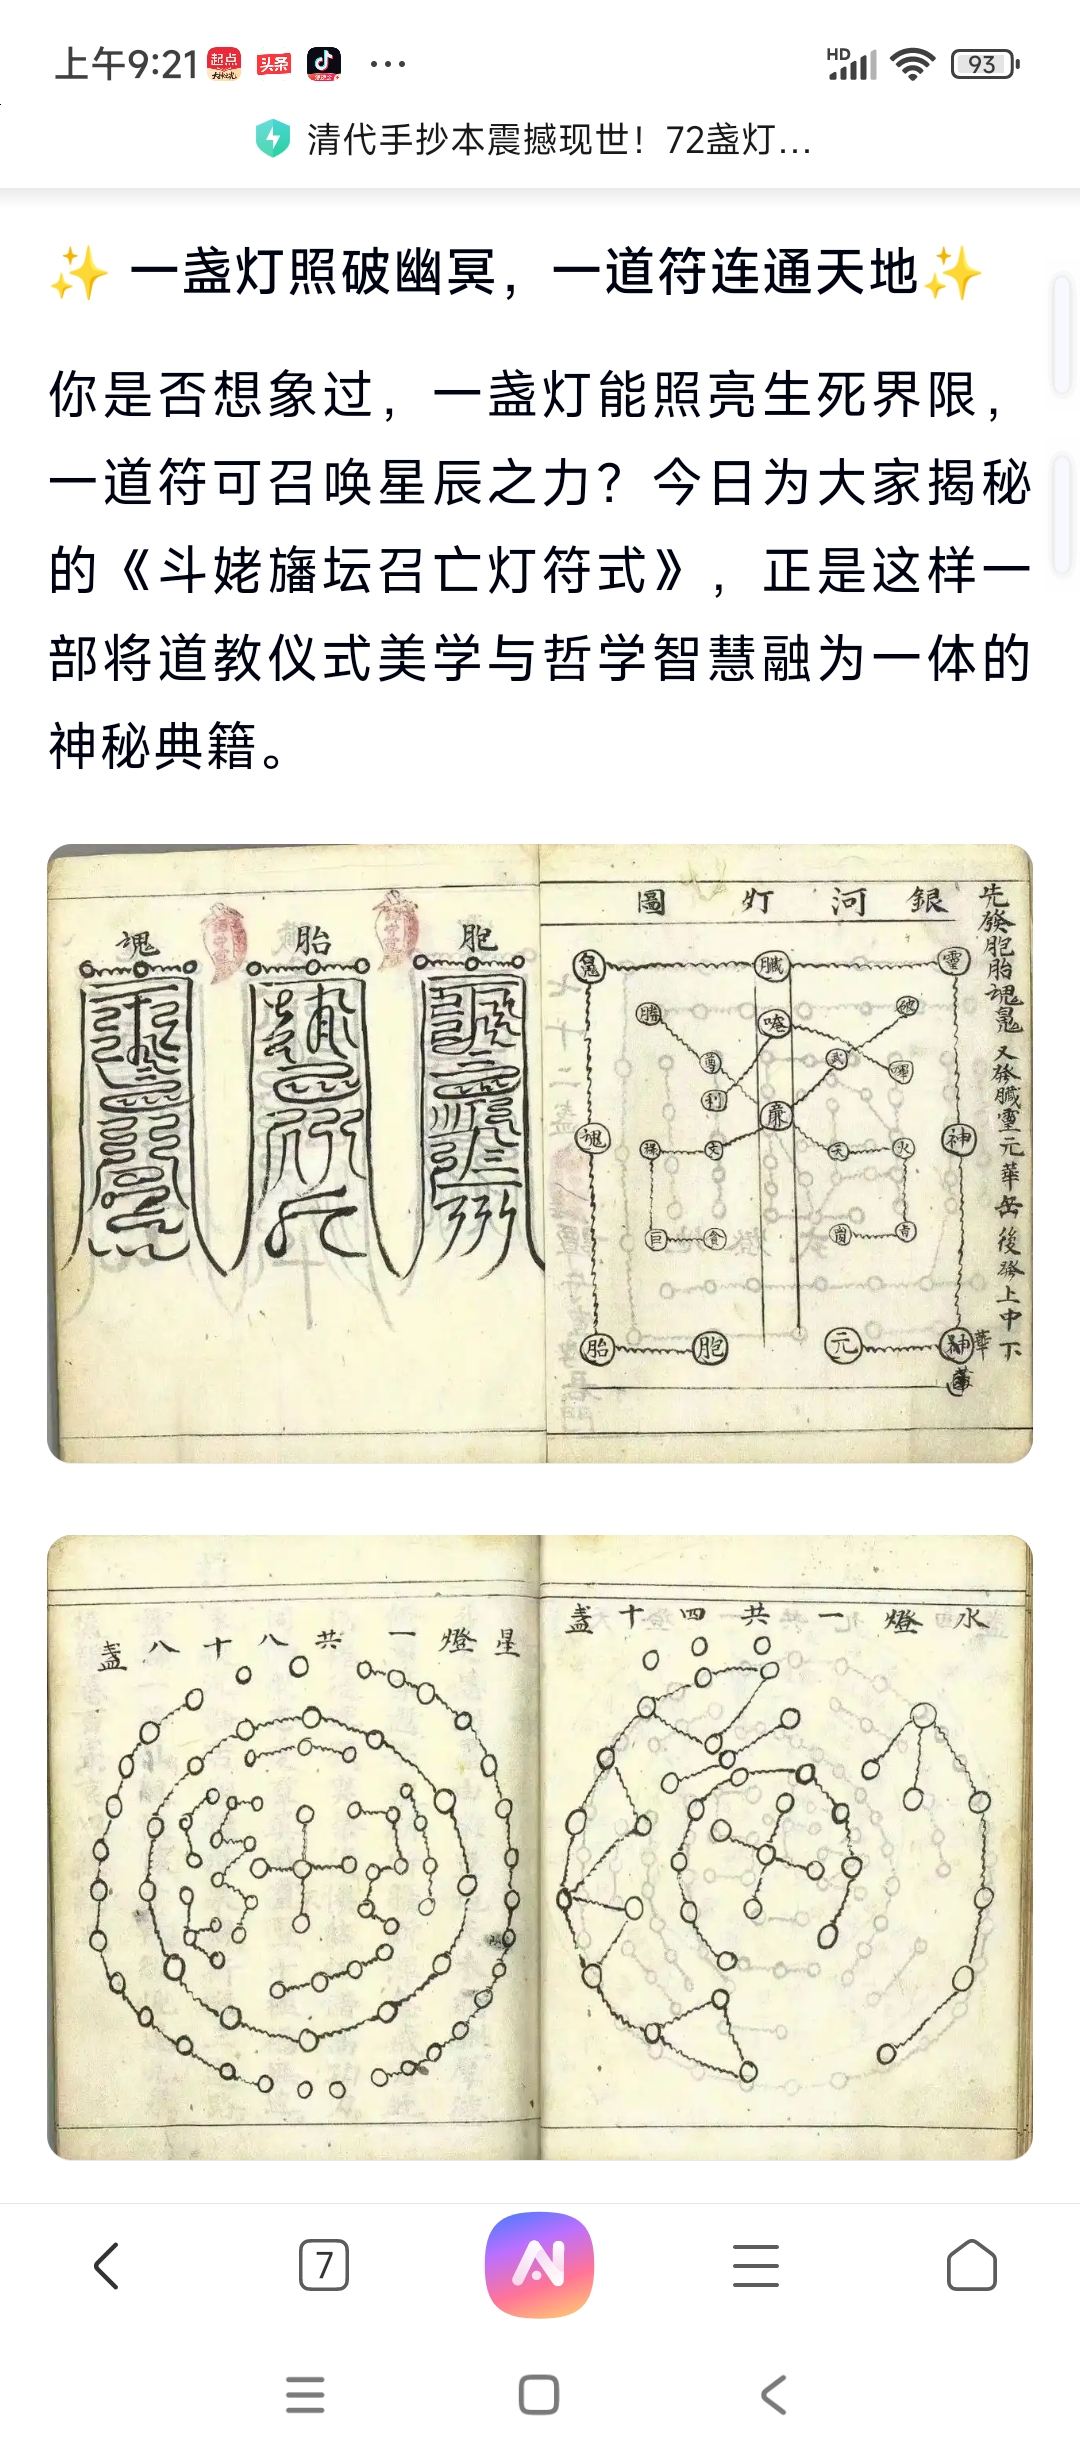 上午9:21
起点
头条
...
HD
93
清代手抄本震撼现世！72盏灯...
✨ 一盏灯照破幽冥，一道符连通天地✨
你是否想象过，一盏灯能照亮生死界限，
一道符可召唤星辰之力？今日为大家揭秘
的《斗姥旛坛召亡灯符式》，正是这样一
部将道教仪式美学与哲学智慧融为一体的
神秘典籍。
先發胞胎魂鬼又發臟靈元華岳後發上中下
銀河灯圖
靈
臟
神
魂
胎
胞
元
神
華
破
武
廉
文
祿
巨
貪
尊
勝
利
火
胞
胎
魂
水燈一共四十盞
星燈一共八十八盞
7